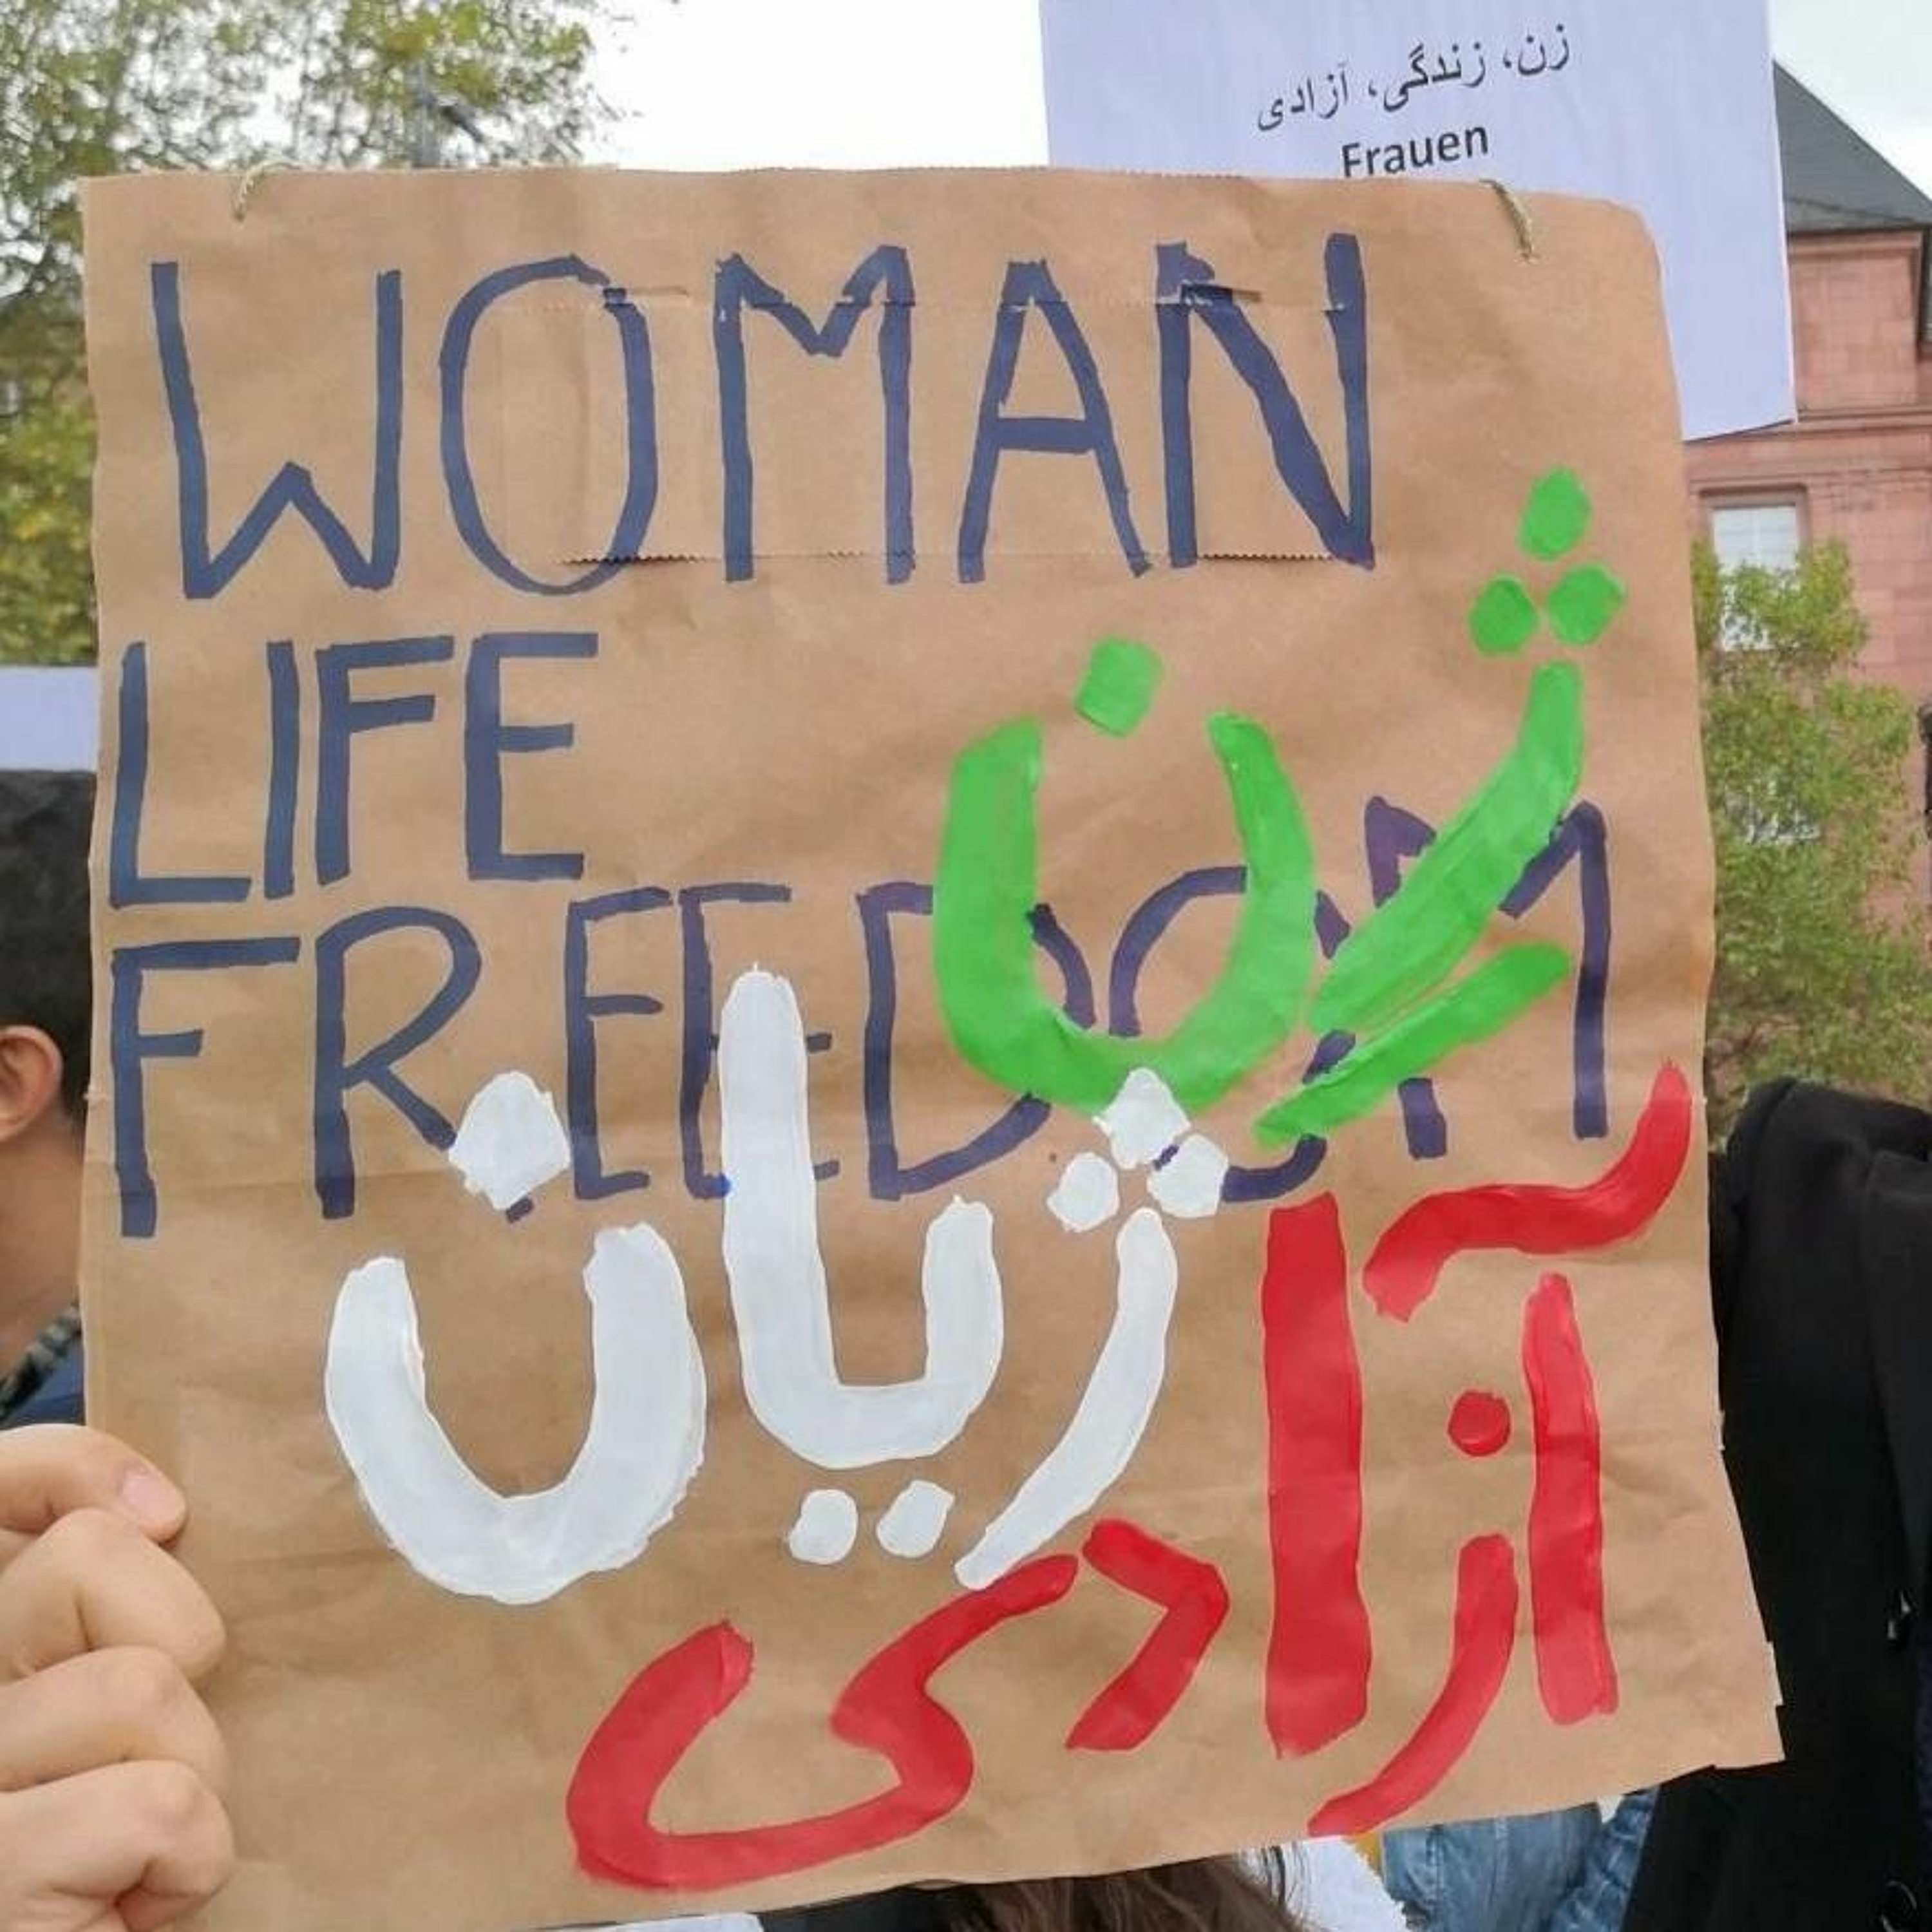 زن، زندگی، آزادی
Frauen
WOMAN
LIFE
FREEDOM
ژن
ژیان
آزادی